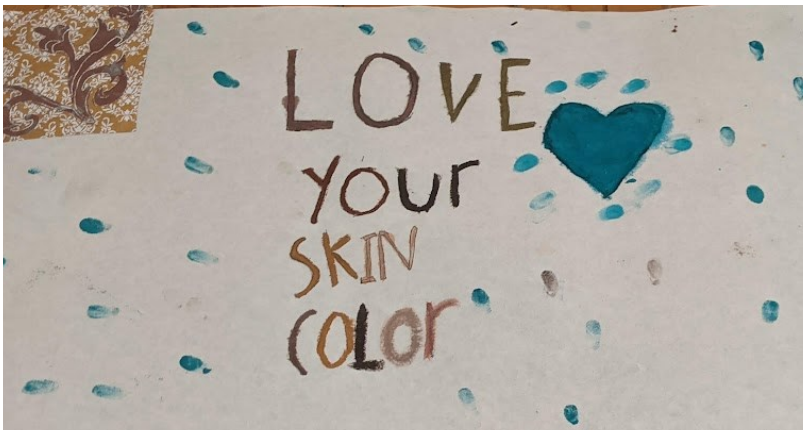 LOVE
Your
SKIN
COLOr